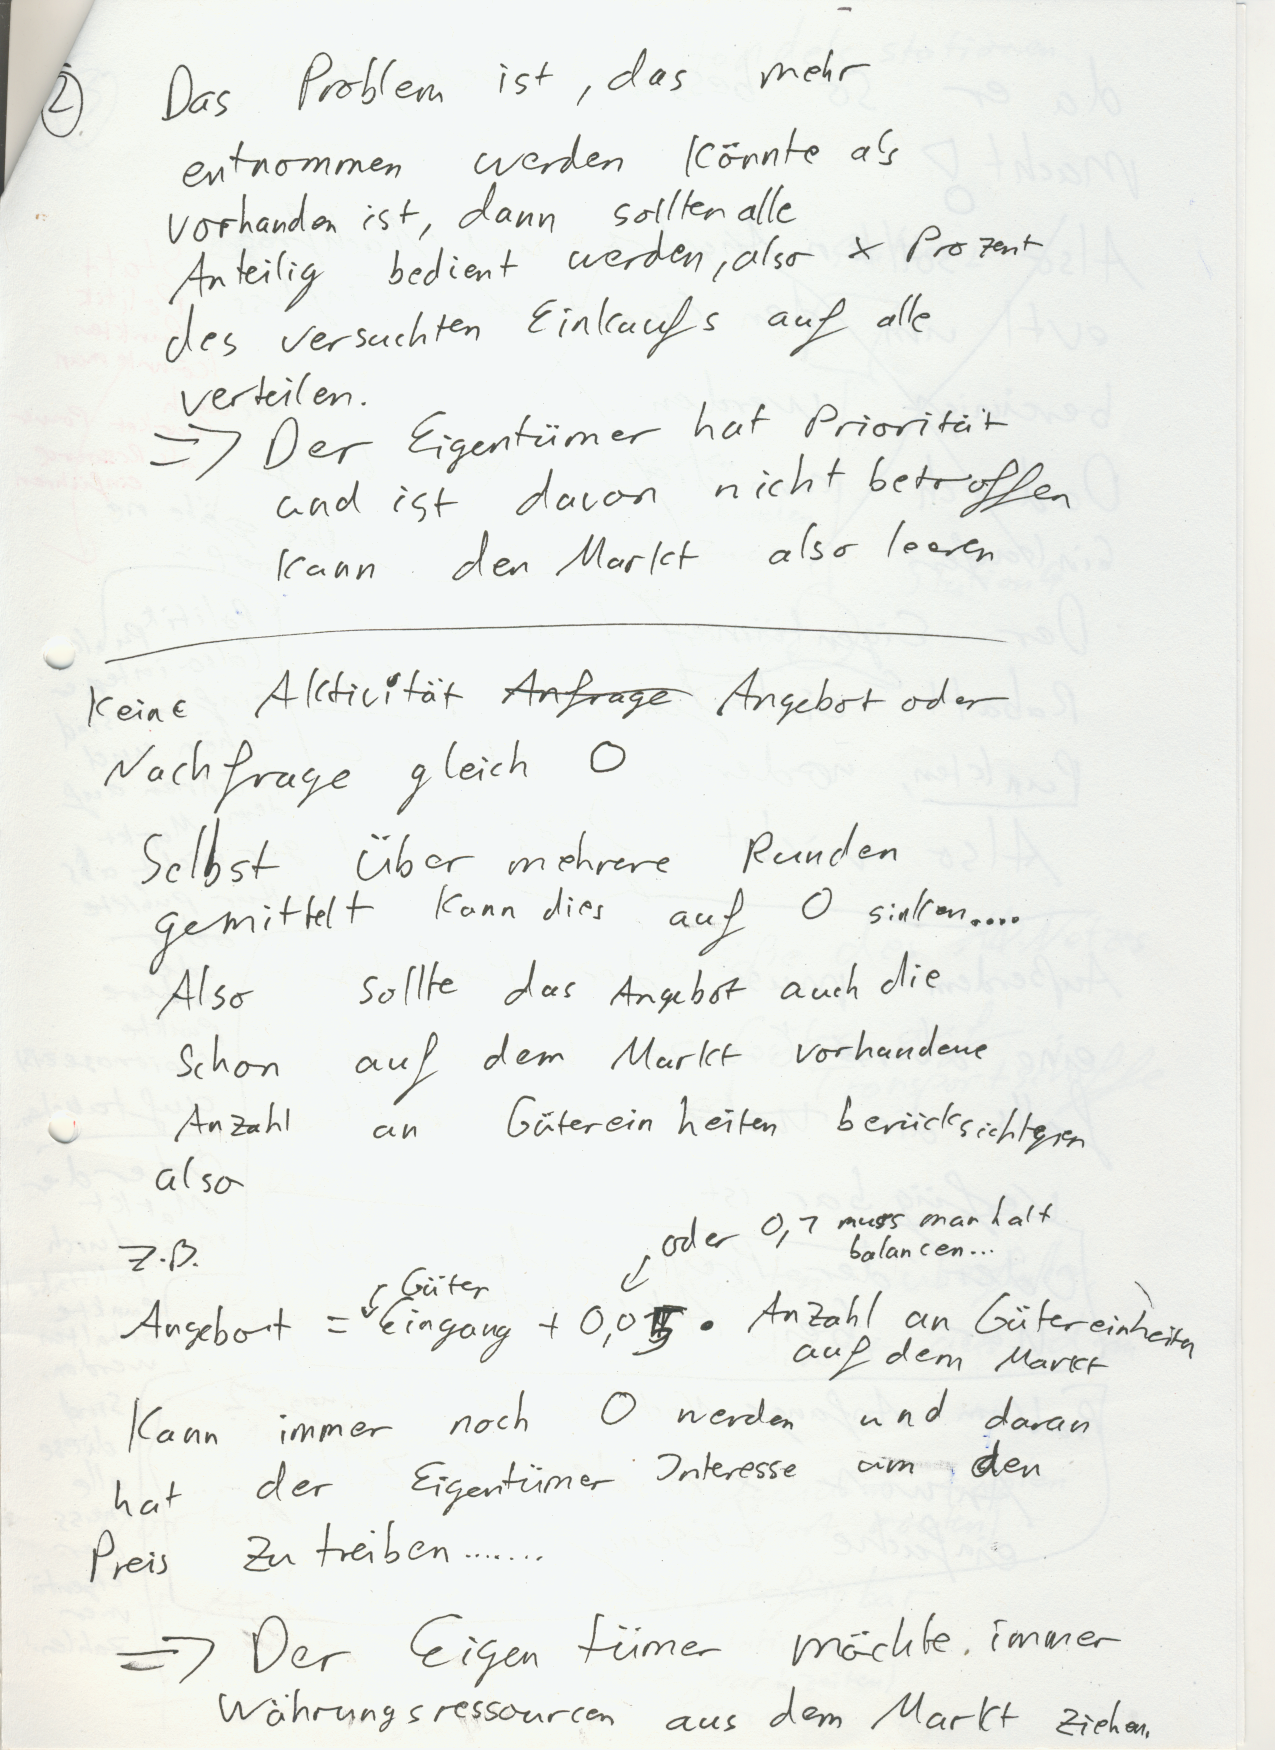 2
Das Problem ist, das mehr
entnommen werden könnte als
vorhanden ist, dann sollten alle
Anteilig bedient werden, also x Prozent
des versuchten Einkaufs auf alle
verteilen.
=> Der Eigentümer hat Priorität
und ist davon nicht betroffen
kann den Markt also leeren
Keine Aktivität Anfrage Angebot oder
Nachfrage gleich 0
Selbst über mehrere Runden
gemittelt kann dies auf 0 sinken....
Also sollte das Angebot auch die
schon auf dem Markt vorhandene
Anzahl an Gütereinheiten berücksichtigen
also
z.B.
oder 0,1 muss man halt
balancen...
Güter
Angebot = Eingang + 0,05 • Anzahl an Gütereinheiten
auf dem Markt
Kann immer noch 0 werden und daran
hat der Eigentümer Interesse um den
Preis zu treiben.......
=> Der Eigentümer möchte immer
Währungsressourcen aus dem Markt ziehen.